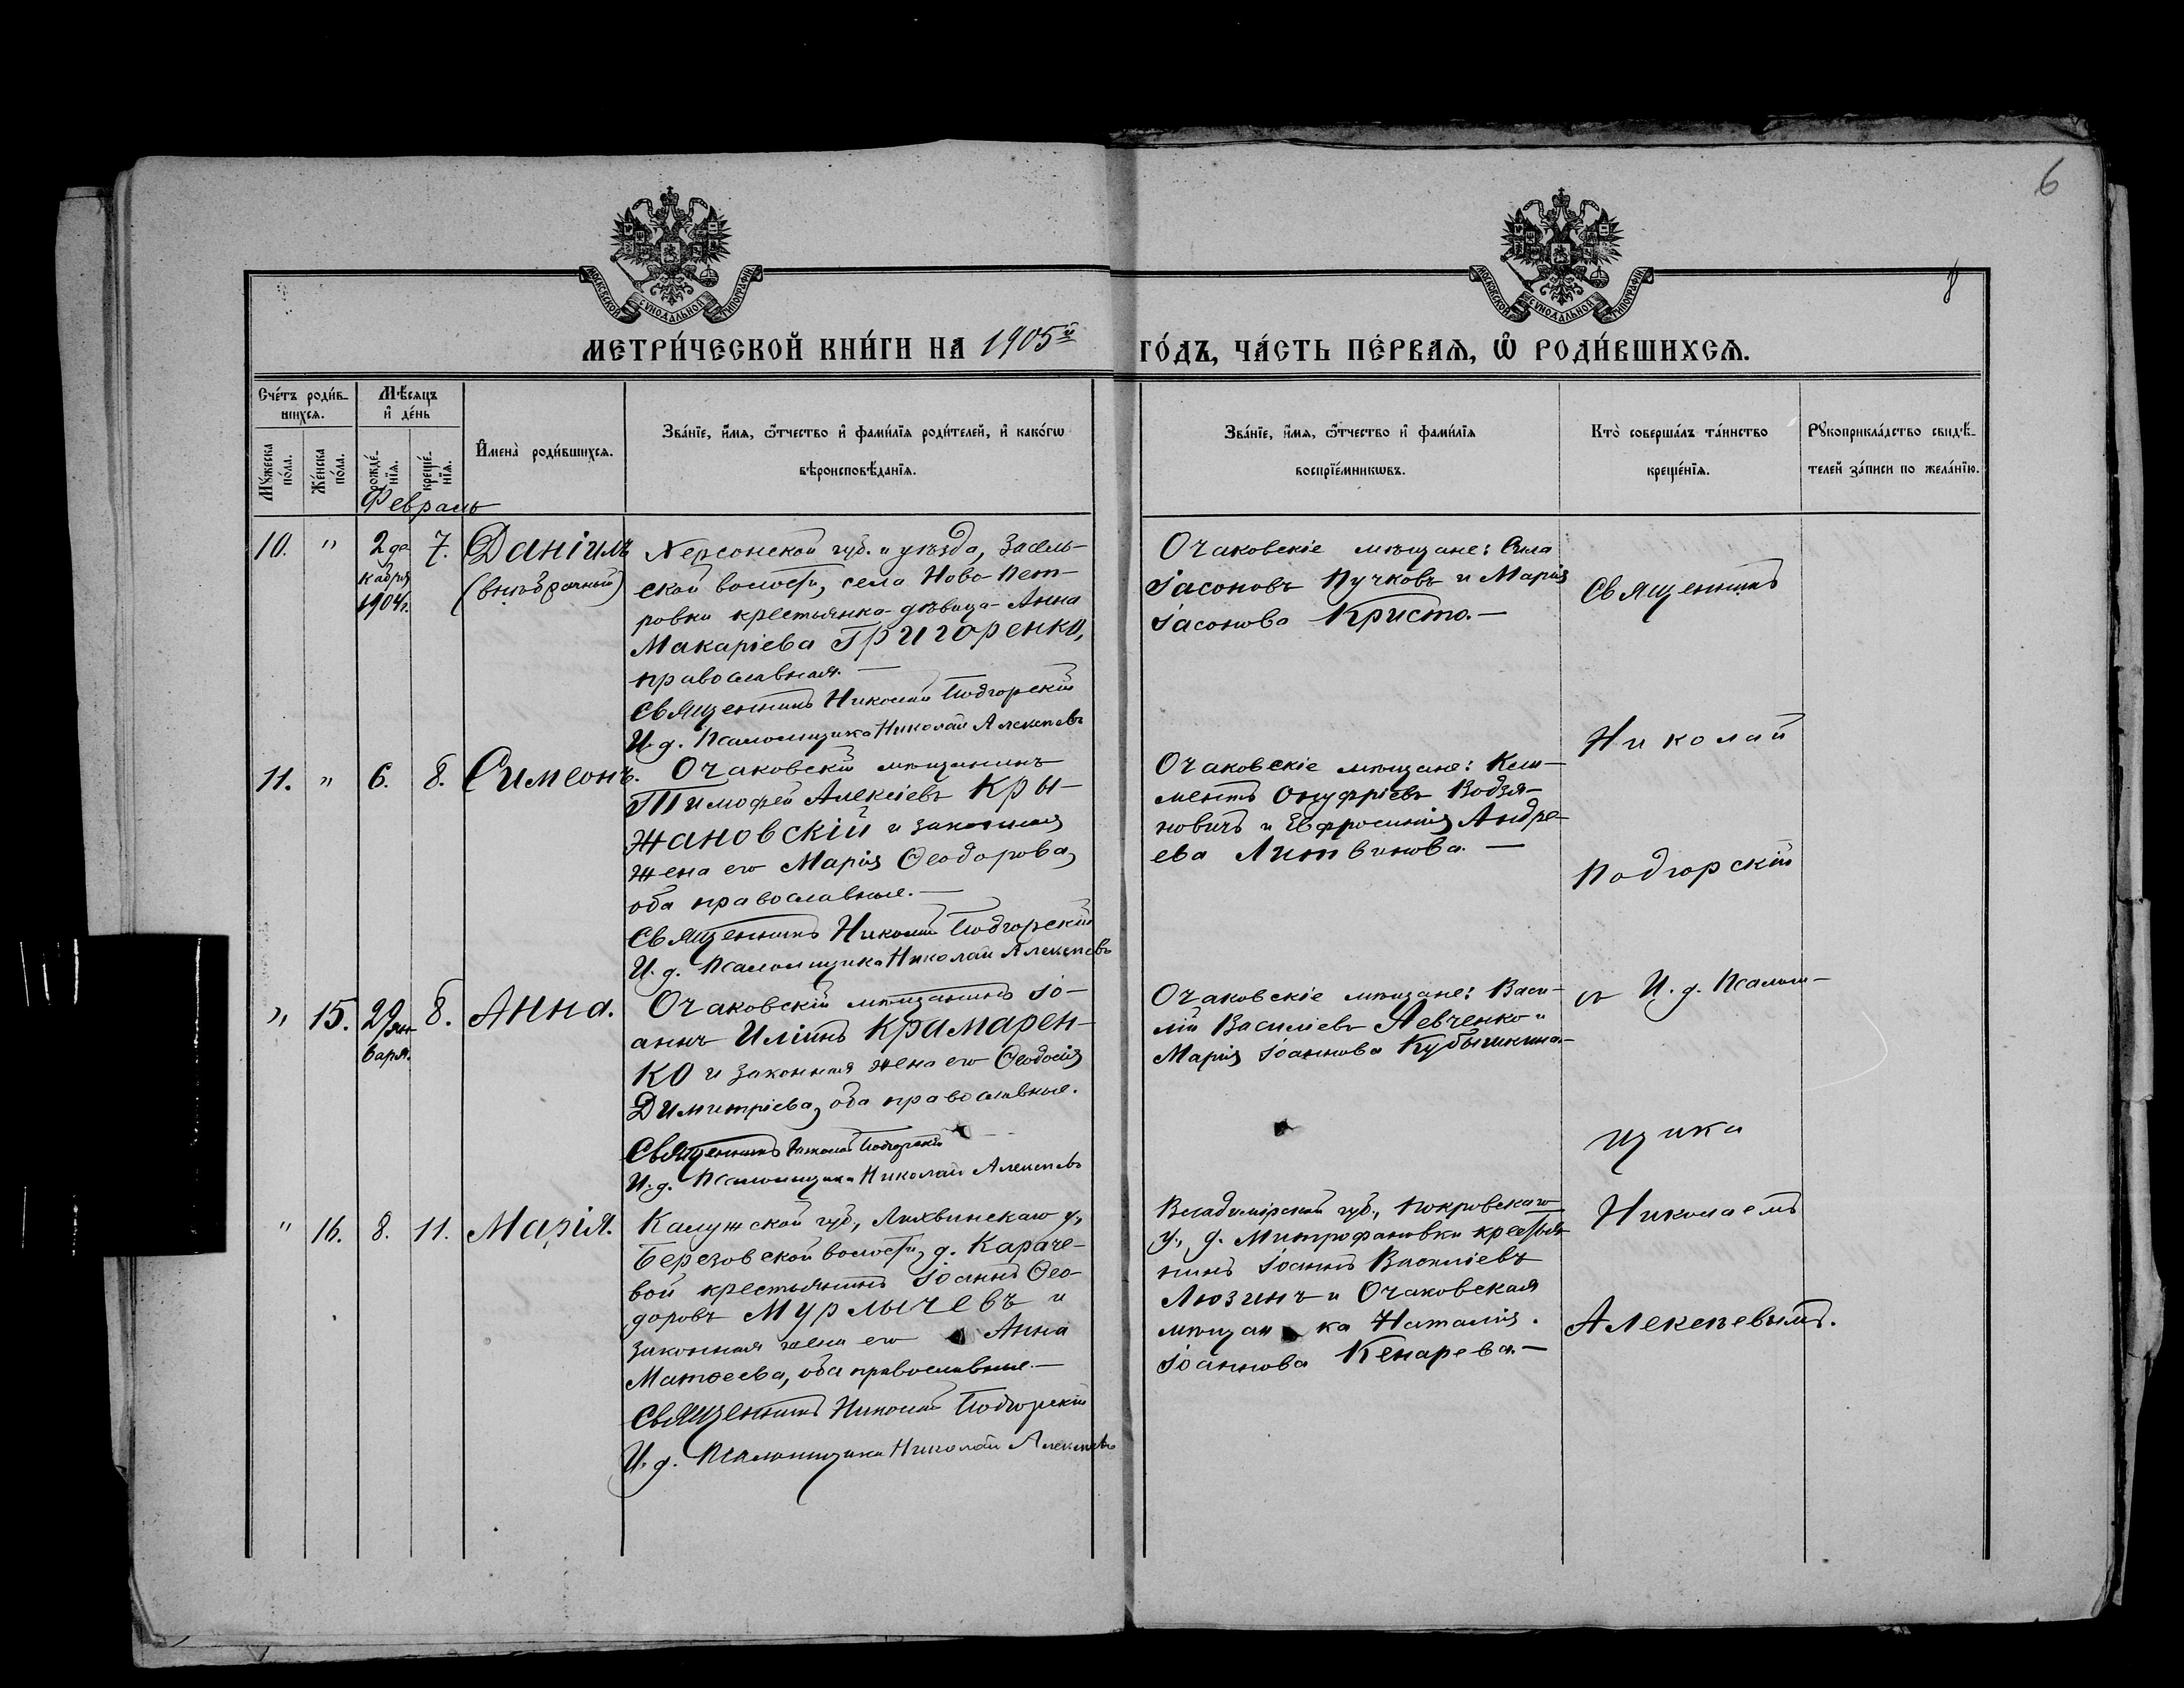 6
8
МОСКОВСКОЙ СѴНОДАЛЬНОЙ ТИПОГРАФІИ
МОСКОВСКОЙ СѴНОДАЛЬНОЙ ТИПОГРАФІИ
МЕТРИ́ЧЕСКОЙ КНИ́ГИ НА 1905й ГО́ДЪ, ЧА́СТЬ ПЕ́РВАѦ, Ѽ РОДИ́ВШИХСѦ.
Сче́тъ роди́в-
шихсѧ.
Мꙋ́жеска по́ла.
Же́нска по́ла.
Мѣ́сѧцъ и҆ де́нь
рожде́-нїѧ.
креще́-нїѧ.
И҆мена̀ роди́вшихсѧ.
Зва́нїе, и҆́мѧ, ѻ҆́тчество и҆ фами́лїѧ роди́телей, и҆ како́гѡ
вѣроисповѣ́данїѧ.
Зва́нїе, и҆́мѧ, ѻ҆́тчество и҆ фами́лїѧ
воспрїе́мникѡвъ.
Кто̀ соверша́лъ та́инство
креще́нїѧ.
Рꙋкоприкла́дство свидѣ́-
телей за́писи по жела́нїю.
Февраль
10. " 2 де- 7. Даніилъ
кабря (внѣбрачный)
1904г.
Херсонской губ. и уѣзда, Засель-
ской волости, села Ново-Пет-
ровки крестьянка-дѣвица-Анна
Макаріева Григоренко,
православная.—
Священникъ Николай Подгорскій
И. д. Псаломщика Николай Алексѣевъ
Очаковскіе мѣщане: Сила
Іасоновъ Пучковъ и Марія
Іасонова Кристо.—
11. " 6. 8. Симеонъ.
Очаковскій мѣщанинъ
Тимофей Алексіевъ Кры-
жановскій и законная
жена его Марія Ѳеодорова,
оба православные.—
Священникъ Николай Подгорскій
И. д. Псаломщика Николай Алексѣевъ
Очаковскіе мѣщане: Кли-
ментъ Онуфріевъ Водзя-
новичъ и Евфросинія Андре-
ева Литвинова.—
" 15. 29 ян- 8. Анна.
варя.
Очаковскій мѣщанинъ Іо-
аннъ Иліинъ Крамарен-
ко и законная жена его Ѳеодосія
Димитріева, оба православные.
Священникъ Николай Подгорскій
И. д. Псаломщика Николай Алексѣевъ
Очаковскіе мѣщане: Васи-
лій Василіевъ Левченко и
Марія Іоаннова Кубышкина.—
" 16. 8. 11. Марія.
Калужской губ., Лихвинскаго у.,
Березовской волости, д. Караче-
вой крестьянинъ Іоаннъ Ѳео-
доровъ Мурлычевъ и
законная жена его Анна
Матѳеева, оба православные.—
Священникъ Николай Подгорскій
И. д. Псаломщика Николай Алексѣевъ
Владимірской губ., Покровскаго
у., д. Митрофановки крестья-
нинъ Іоаннъ Василіевъ
Люзинъ и Очаковская
мѣщанка Наталія
Іоаннова Кенарева.—
Священникъ
Николай
Подгорскій
съ И. д. Псалом-
щика
Николаемъ
Алексѣевымъ.